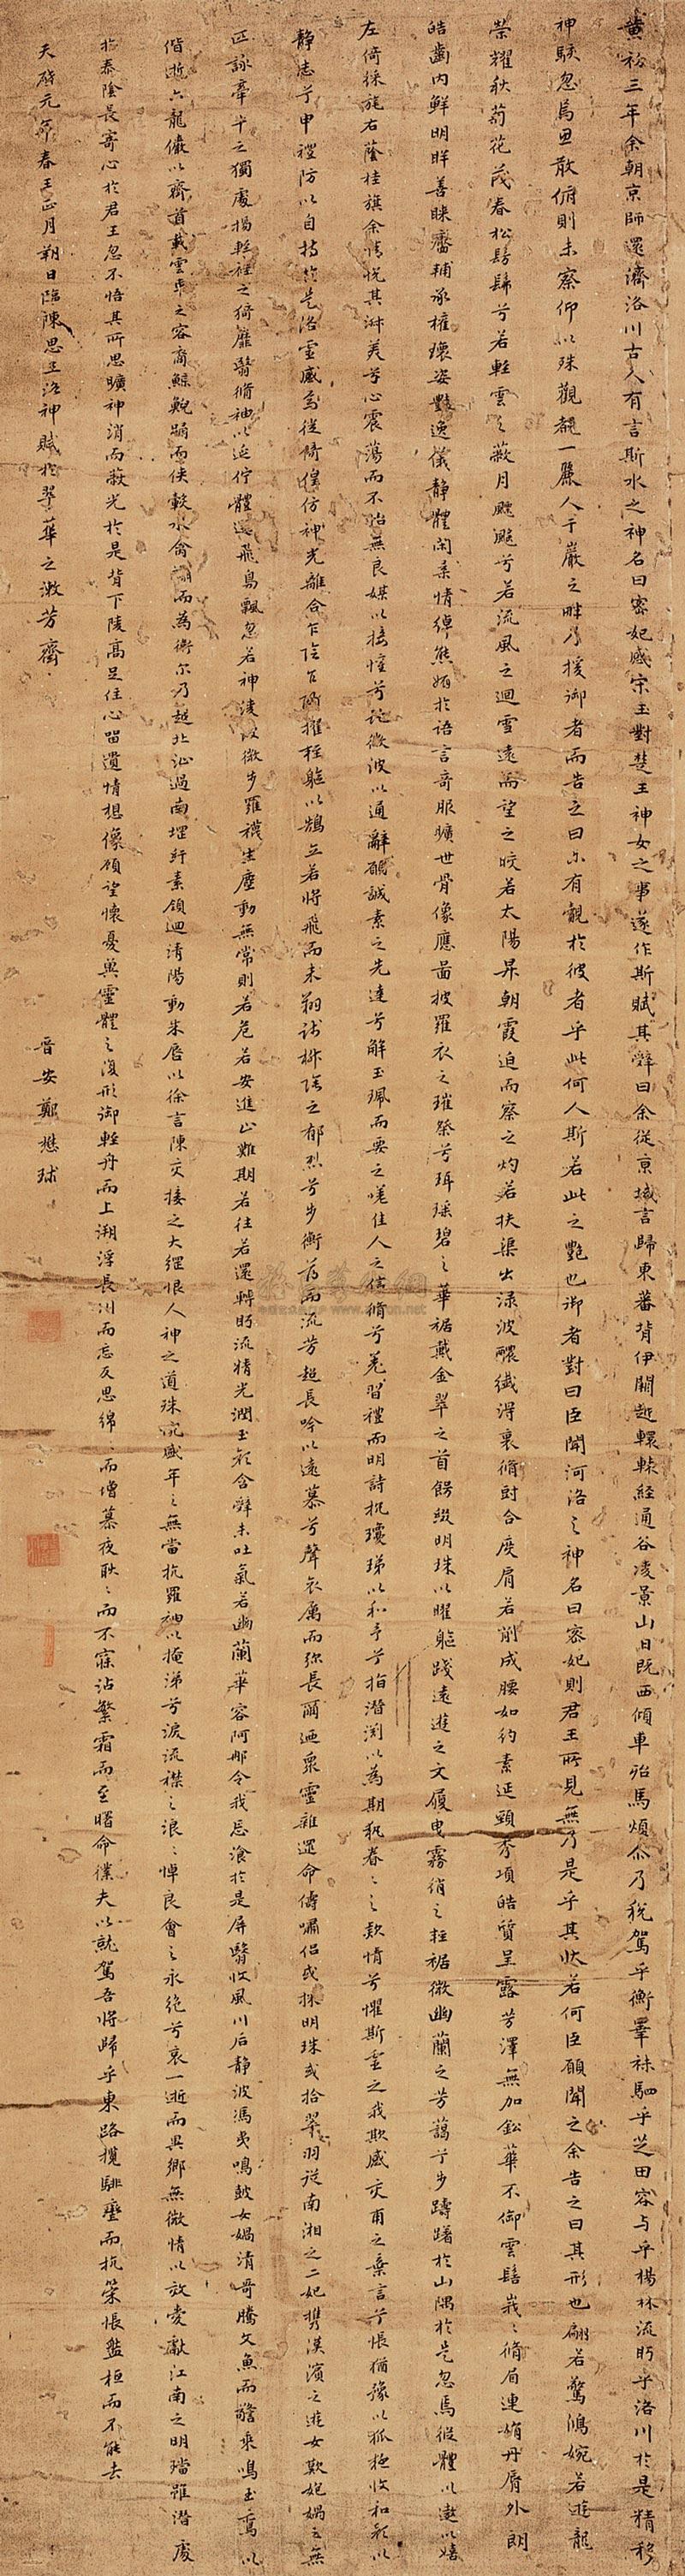 黄初三年余朝京師還濟洛川古人有言斯水之神名曰宓妃感宋玉對楚王神女之事遂作斯賦其辭曰余從京域言歸東藩背伊闕越轘轅經通谷陵景山日既西傾車殆馬煩尒乃稅駕乎衡睪秣駟乎芝田容与乎楊林流眄乎洛川於是精移
神駭忽焉思散俯則未察仰以殊觀覩一麗人于巖之畔乃援御者而告之曰尒有覿於彼者乎此何人斯若此之艷也御者對曰臣聞河洛之神名曰宓妃則君王所見無乃是乎其狀若何臣願聞之余告之曰其形也翩若驚鴻婉若遊龍
榮耀秋菊花茂春松髣髴兮若輕雲之蔽月飄颻兮若流風之迴雪遠而望之皎若太陽昇朝霞迫而察之灼若扶渠出淥波穠纖得衷脩短合度肩若削成腰如約素延頸秀項皓質呈露芳澤無加鉛華不御雲髻峩〻脩眉連娟丹脣外朗
皓齒內鮮明眸善睞靨輔承權瓌姿艷逸儀靜體閑柔情綽態媚於語言奇服曠世骨像應圖披羅衣之璀粲兮珥瑤碧之華裾戴金翠之首飾綴明珠以曜軀踐遠遊之文履曳霧綃之輕裾微幽蘭之芳藹兮步躊躇於山隅於是忽焉縱體以遨以嬉
左倚採旄右蔭桂旗余情悅其淑美兮心震蕩而不怡無良媒以接懽兮託微波以通辭願誠素之先達兮解玉珮而要之嗟佳人之信脩兮羌習禮而明詩抗瓊珶以和予兮指潛渕以為期執眷〻之款情兮懼斯靈之我欺感交甫之棄言兮悵猶豫以狐疑收和顏以
靜志兮申禮防以自持於是洛靈感焉徙倚傍徨神光離合乍陰乍陽擢輕軀以鶴立若將飛而未翔踐椒塗之郁烈兮步衡薄而流芳超長吟以遠慕兮聲哀厲而弥長爾迺衆靈雜遝命儔嘯侶或採明珠或拾翠羽從南湘之二妃攜漢濱之遊女歎妃媧之無
匹詠牽牛之獨處揚輕袿之猗靡翳脩袖以延佇體迅飛鳥飄忽若神淩波微步羅襪生塵動無常則若危若安進止難期若往若還轉眄流精光潤玉顏含辭未吐氣若幽蘭華容阿那令我忘飡於是屏翳收風川后靜波馮夷鳴鼓女媧清歌騰文魚而警乘鳴玉鸞以
偕逝六龍儼以齊首載雲車之容裔鯨鯢踊而俠轂水禽翔而為衛尔乃越北沚過南堽紆素領迴清陽動朱唇以徐言陳交接之大綱恨人神之道殊兮怨盛年之無當抗羅袖以掩涕兮淚流襟之浪〻悼良會之永絕兮哀一逝而異鄉無微情以效愛獻江南之明璫雖潛處
於泰陰長寄心於君王忽不悟其所思曠神消而蔽光於是背下陵高足往心留遺情想像顧望懷憂冀靈體之復形御輕舟而上溯浮長川而忘反思綿〻而增慕夜耿〻而不寐沾繁霜而至曙命僕夫以就駕吾將歸乎東路攬騑轡而抗策悵盤桓而不能去
天啓元年春王正月朔日臨陳思王洛神賦於翠華之漱芳齋
晉安鄭懋球